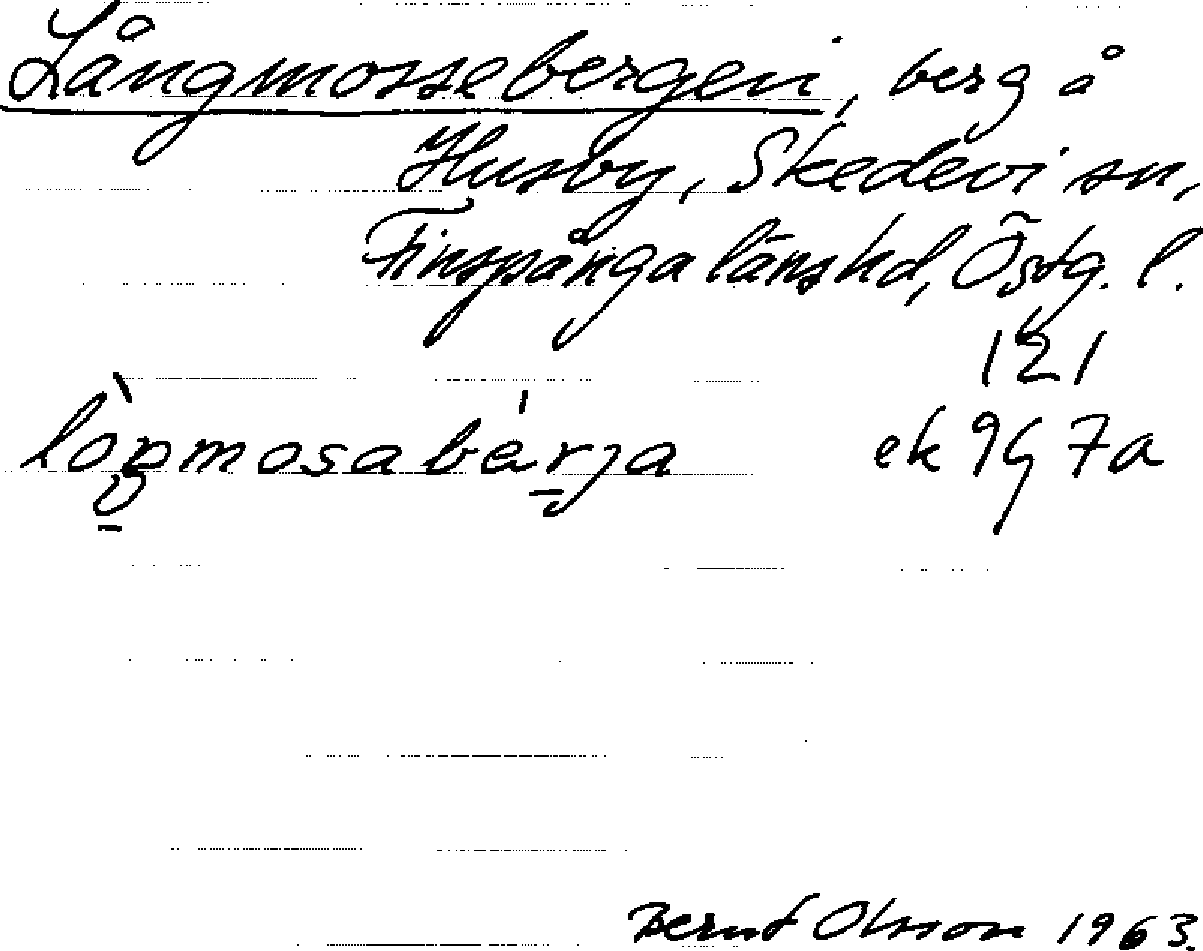 Långmossebergen, berg å
Husby, Skedevi sn,
Finspånga länshd, Östg. l.
121
lòŋmosabérja ek 9G 7a
Bernt Olsson 1963